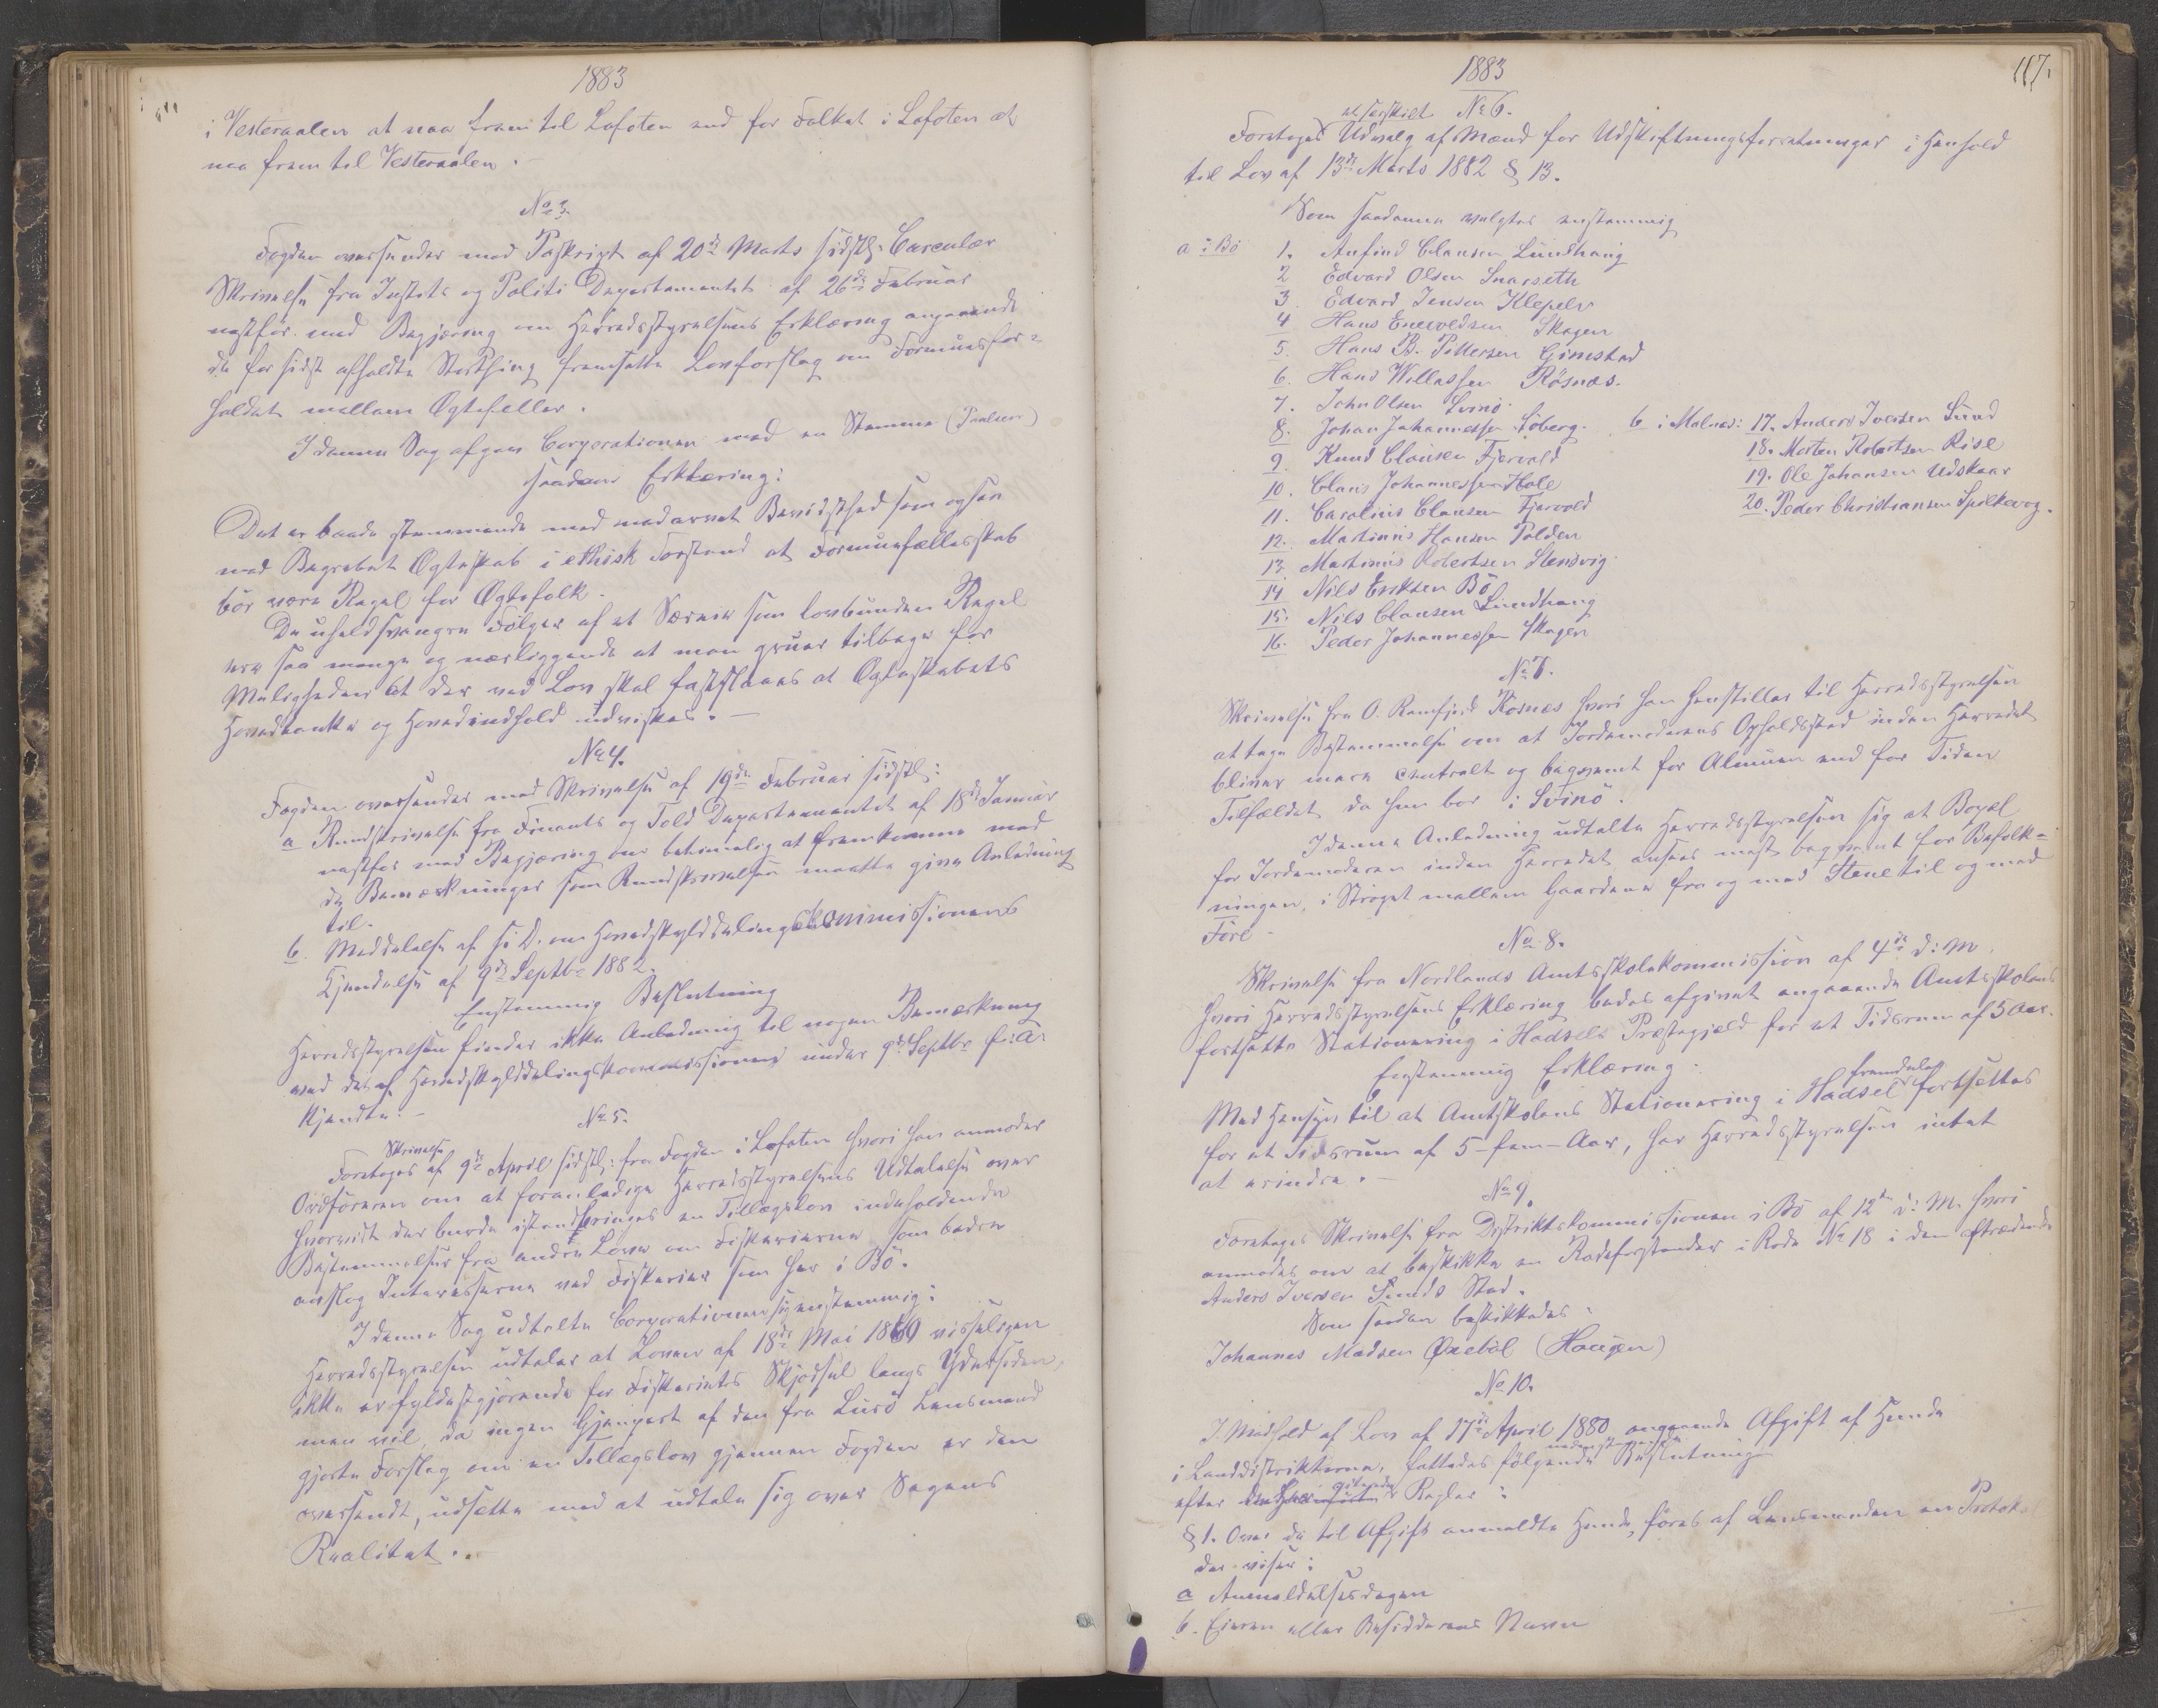 1883
i Vesteraalen at naa frem til Lofoten end for Folket i Lofoten at
naa frem til Vesteraalen.
No 3.
Fogden oversender med Paskrigt af 20de Marts sidstl: Circulær
Skrivelse fra Justits og Politi Departementet af 26de Februar
næstfør. med Begjæring om Herredsstyrelsens Erklæring angaaende
de for sidst afholdte Storthing fremsatte Lovforslag om Formuesfor=
holdet mellem Ægtefeller.
I denne Sag afgav Corporationen mod en Stemme (Paulsen)
saadan Erklæring:
Det er baade stemmende med nedarvet Bevidsthed som ogsaa
med Begrebet Ægteskab i ethisk Forstand at Formuesfællesskab
bör være Regel for Ægtefolk.
De uheldsvangre Fölger af et Særeie som lovbunden Regel
ere saa mange og nærliggende at man gruer tilbage for
Muligheden at der ved Lov skal fastslaaes at Ægteskabets
Hovedtanke og Hovedindhold udviskes. —
No 4.
Fogden oversender med Skrivelse af 19de Februar sidstl:
a Rundskrivelse fra Finants og Told Departementet af 18de Januar
næstfør med Begjæring om betimelig at fremkomme med
de Bemærkninger som Rundskrivelsen maatte give Anledning
til.
b. Meddelelse af s: D. om Herredskylddelingskommissionens
Kjendelse af 9de Septbr 1882.
Enstemmig Beslutning
Herredsstyrelsen finder ikke Anledning til nogen Bemærkning
ved det af Herredskylddelingskommissionen under 9de Septbr f: A:
Kjendte. —
No 5.
Skrivelse
Foretoges af 9de April sidstl: fra Fogden i Lofoten hvori han anmoder
Ordföreren om at foranledige Herredsstyrelsens Udtalelse over
hvorvidt der burde istandbringes en Tillægslov indeholdende
Bestemmelser fra andre Love om Fiskerierne som bedre
afslog Interesserne ved Fiskerier som her i Bö.
I denne Sag udtalte Corporationen sig enstemmig:
Herredsstyrelsen udtaler at Loven af 18de Mai 1869 visseligen
ikke er fyldestgjörende for Fiskeriets Skjödsel langs Ydersiden,
men vil, da ingen Gjenpart af den fra Lurö Lensmand
gjorte Forslag om en Tillægslov gjennem Fogden er den
oversendt, udsette med at udtale sig over Sagens
Realitet. —
1883
117.
No 6.
et særskilt
Foretoges Udvalg af Mænd for Udskiftningsforretninger i Henhold
til Lov af 13de Marts 1882 § 13.
Som saadanne valgtes enstemmig
a i Bö 1. Anfind Clausen Lundhaug
2 Edvard Olsen Snarseth
3. Edvard Jensen Klepelv
4 Hans Enevoldsen Skagen
5. Hans B. Pettersen Gimstad
6. Hans Willassen Rösnæs.
7. John Olsen Svinö.
8. Johan Johannessen Söberg.
9. Knud Clausen Fjervold
10. Claus Johannessen Hole
11. Carolius Clausen Fjervold
12. Martinus Hansen Polden
13. Martinus Robertsen Stensvig
14. Nils Eriksen Bö
15. Nils Clausen Lundhaug
16. Peder Johannessen Skagen
b i Malnæs: 17. Anders Iversen Sund
18. Morten Robertsen Rise
19. Ole Johansen Udskaar
20. Peder Christiansen Spilkevog.
No 7.
Skrivelse fra O. Ramfjord Rösnæs hvori han henstiller til Herredsstyrelsen
at tage Bestemmelse om at Jordemoderens Opholdssted inden Herredet
bliver mere centralt og beqvemt for Almuen end for Tiden
Tilfældet da hun bor i Svinö.
I denne Anledning udtalte Herredsstyrelsen sig at Bopæl
for Jordemoderen inden Herredet ansees mest beqvemt for Befolk=
ningen, i Ströget mellem Gaardene fra og med Stene til og med
Före.
No 8.
Skrivelse fra Nordlands Amtsskolekommission af 4de d: M.
hvori Herredsstyrelsens Erklæring bedes afgivet angaaende Amtsskolens
fortsatte Stationering i Hadsels Præstegjeld for et Tidsrum af 5 Aar.
Enstemmig Erklæring:
Med Hensyn til at Amtskolens Stationering i Hadsel fremdeles fortsettes
for et Tidsrum af 5-fem-Aar, har Herredsstyrelsen intet
at erindre. —
No 9.
Foretoges Skrivelse fra Distriktskommissionen i Bö af 12te d: M. hvori
anmodes om at beskikke en Rodeforstander i Rode No 18 i den aftrædende
Anders Iversen Sunds Sted.
Som saadan beskikkedes:
Johannes Madsen Qveböl (Haugen)
No 10.
I Medhold af Lov af 17de April 1880 angaaende Afgift af Hunde
i Landdistrikterne, fattedes fölgende Beslutning
efter Regler:
§ 1. Over de til Afgift anmeldte Hunde, föres af Lensmanden en Protok.
der viser:
a Anmeldelsesdagen
b. Eieren eller Besidderens Navn